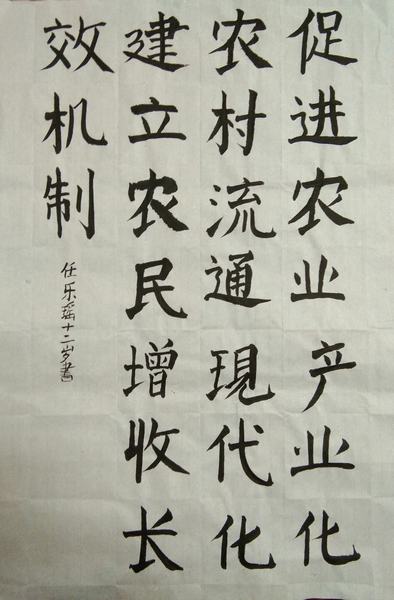 促进农业产业化
农村流通現代化
建立农民增收长
效机制
任乐瑶十二岁書